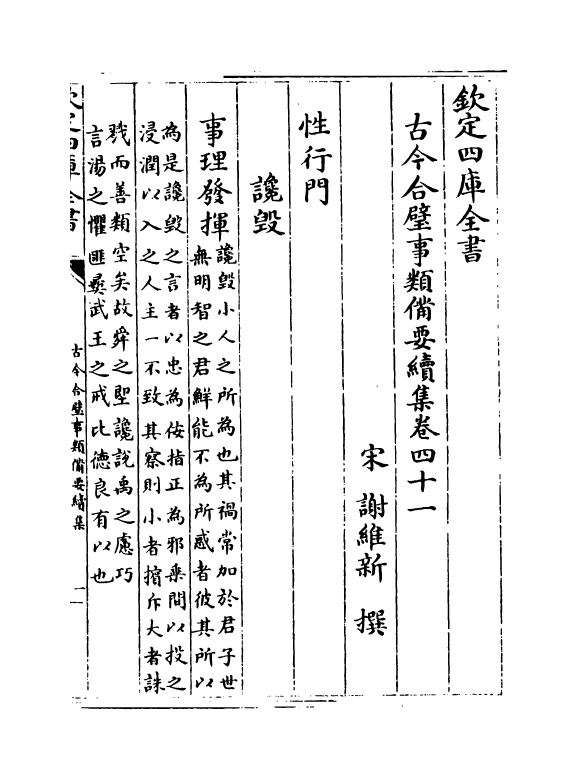 欽定四庫全書
古今合璧事類備要續集卷四十一
宋 謝維新 撰
性行門
讒毀
事理發揮
讒毀小人之所為也其禍常加於君子世
無明智之君鮮能不為所惑者彼其所以
為是讒毀之言者以忠為佞指正為邪乗間以投之
浸潤以入之人主一不致其察則小者擯斥大者誅
戮而善類空矣故舜之堲讒說禹之慮巧
言湯之懼匪彛武王之戒比德良有以也
欽定四庫全書
古今合璧事類備要續集